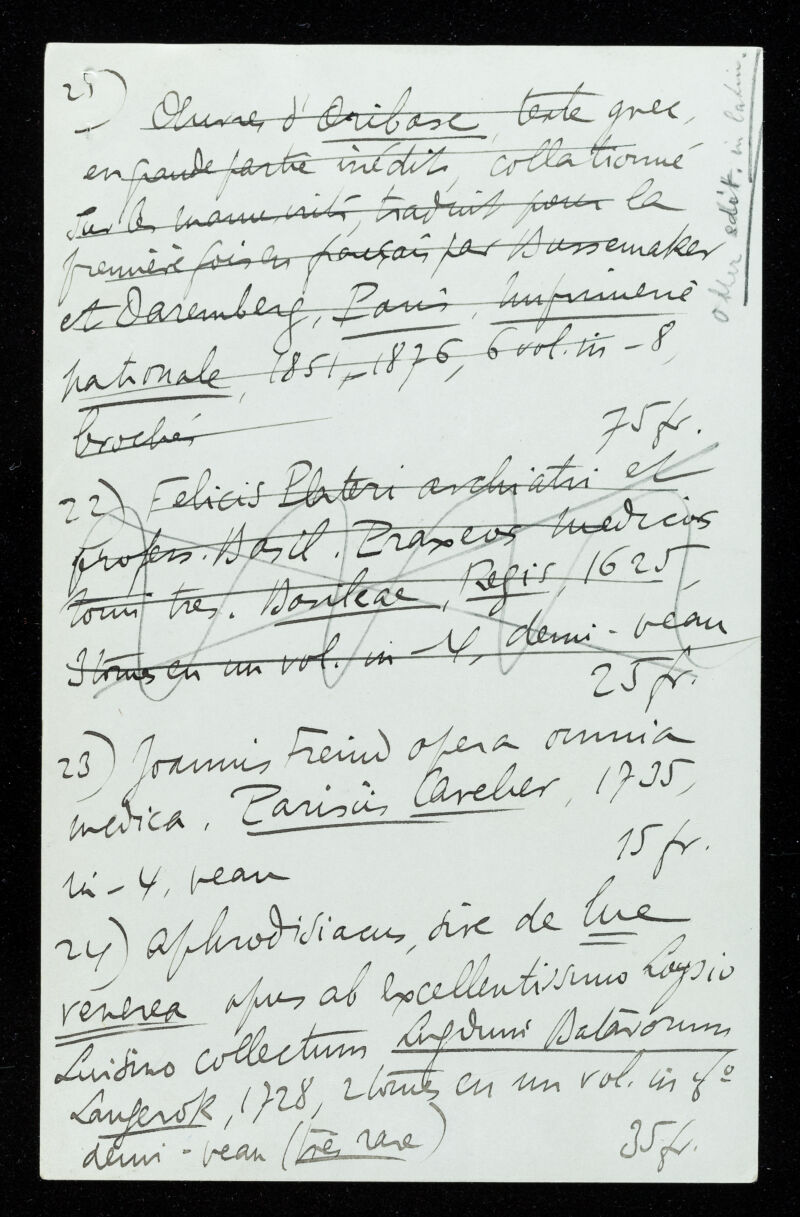 21) Œuvres d'Oribase, texte grec,
en grande partie inédit, collationné
sur les manuscrits, traduit pour la
première fois en français par Bussemaker
et Daremberg, Paris, Imprimerie
nationale, 1851-1876, 6 vol. in-8,
brochés
75 fr.
22) Felicis Plateri archiatri et
profess. Basil. Praxeos medicos
tomi tres. Basileae, Regis, 1625,
3 tomes en un vol. in-4, demi-veau
25 fr.
23) Joannis Freind opera omnia
medica, Parisiis Cavelier, 1735,
in-4, veau
15 fr.
24) Aphrodisiacus, sive de lue
venerea opus ab excellentissimo Loysio
Luisino collectum Lugduni Batavorum
Langerok, 1728, 2 tomes en un vol. in fo
demi-veau (très rare)
35 fr.
Other edit. in latin.